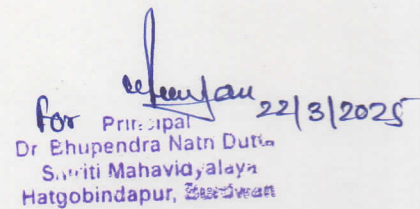 22/3/2025
For Principal
Dr Bhupendra Nath Dutta
Smriti Mahavidyalaya
Hatgobindapur, Burdwan